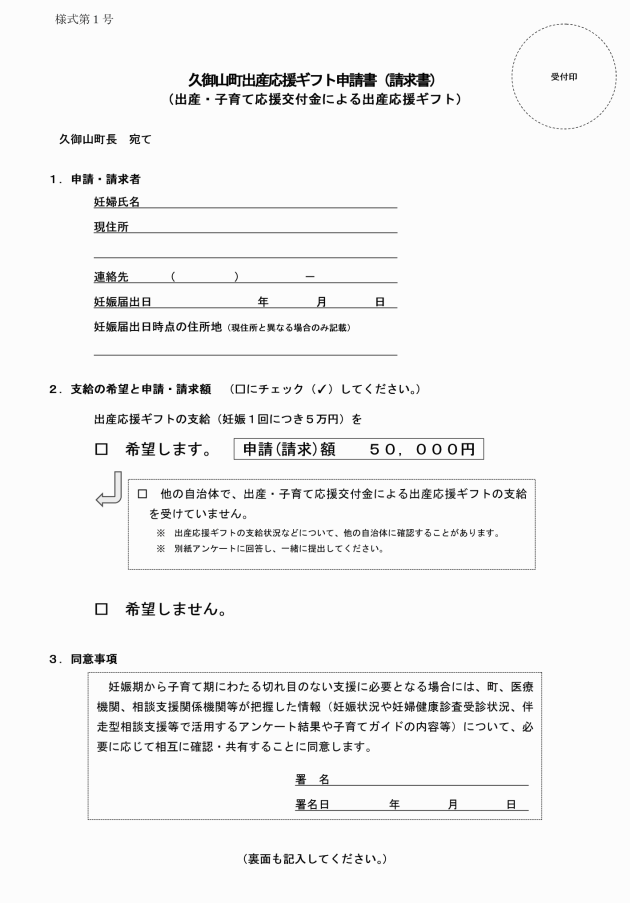 様式第１号
久御山町出産応援ギフト申請書（請求書）
（出産・子育て応援交付金による出産応援ギフト）
受付印
久御山町長　宛て
１．申請・請求者
妊婦氏名
現住所
連絡先　　　（　　　　　）　　　　　　－
妊娠届出日　　　　　　　　　年　　　　月　　　　日
妊娠届出日時点の住所地（現住所と異なる場合のみ記載）
２．支給の希望と申請・請求額　（□にチェック（✓）してください。）
出産応援ギフトの支給（妊娠１回につき５万円）を
□　希望します。　申請(請求)額　　５０，０００円
□　他の自治体で、出産・子育て応援交付金による出産応援ギフトの支給
を受けていません。
※　出産応援ギフトの支給状況などについて、他の自治体に確認することがあります。
※　別紙アンケートに回答し、一緒に提出してください。
□　希望しません。
３．同意事項
妊娠期から子育て期にわたる切れ目のない支援に必要となる場合には、町、医療
機関、相談支援関係機関等が把握した情報（妊娠状況や妊婦健康診査受診状況、伴
走型相談支援等で活用するアンケート結果や子育てガイドの内容等）について、必
要に応じて相互に確認・共有することに同意します。
署　名
署名日　　　　　年　　　　月　　　　日
（裏面も記入してください。）